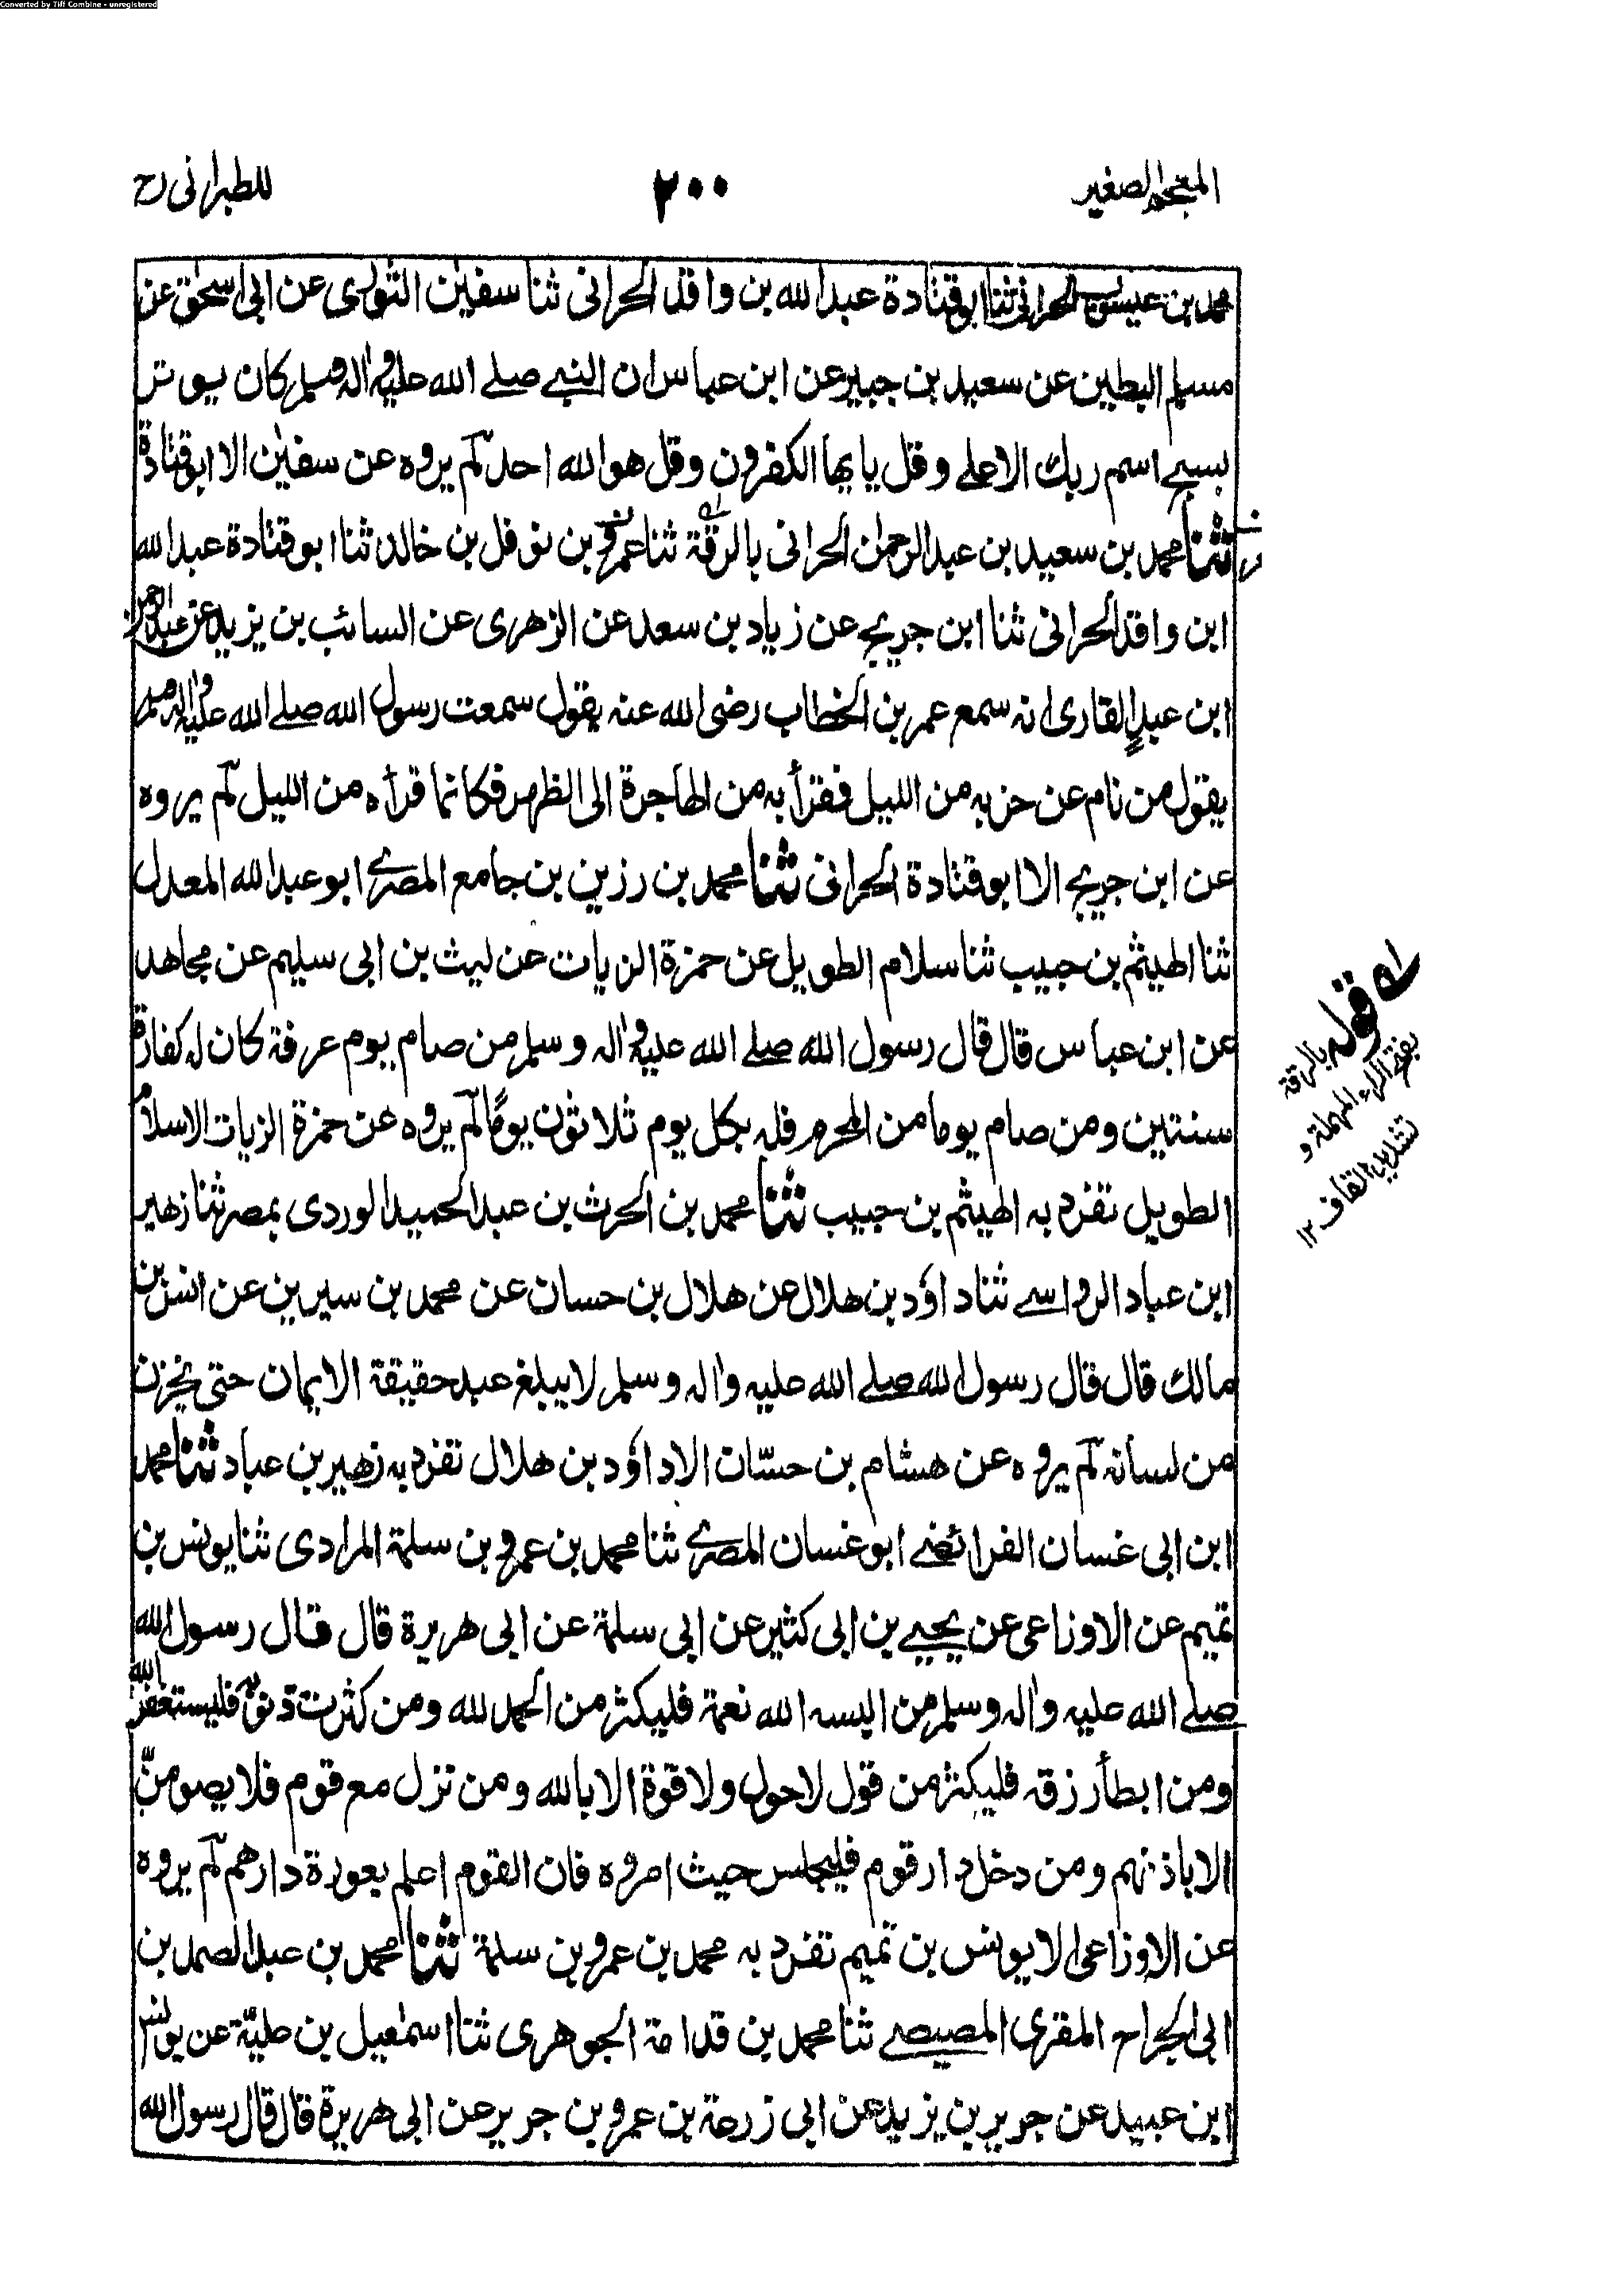 Converted by Tiff Combine - unregistered
المعجم الصغير
٢٠٠
للطبرانى رح
محمد بن عيسى الحرانى ثنا ابو قتادة عبد الله بن واقد الحرانى ثنا سفيٰن الثورى عن ابى اسحٰق عن
مسلم البطين عن سعيد بن جبير عن ابن عباس ان النبى صلے الله عليه واٰله وسلم كان يوتر
بسبح اسم ربك الاعلے وقل يايها الكفرون وقل هو الله احد لم يروه عن سفيٰن الا ابو قتادة
ثنا محمد بن سعيد بن عبد الرحمٰن الحرانى بالرقة ثنا عمرو بن نوفل بن خالد ثنا ابو قتادة عبد الله
ابن واقد الحرانى ثنا ابن جريج عن زياد بن سعد عن الزهرى عن السائب بن يزيد عن عبد الرحمن
ابن عبدٍ القارى انه سمع عمر بن الخطاب رضى الله عنه يقول سمعت رسول الله صلے الله عليه واٰله وسلم
يقول من نام عن حزبه من الليل فقرأ به من الهاجرة الى الظهر فكانما قرأه من الليل لم يروه
عن ابن جريج الا ابو قتادة الحرانى ثنا محمد بن رزين بن جامع المصرے ابو عبد الله المعدل
ثنا الهيثم بن حبيب ثنا سلام الطويل عن حمزة الزيات عن ليث بن ابى سليم عن مجاهد
عن ابن عباس قال قال رسول الله صلے الله عليه واٰله وسلم من صام يوم عرفة كان له كفارة
سنتين ومن صام يوما من المحرم فله بكل يوم ثلاثون يومًا لم يروه عن حمزة الزيات الا سلام
الطويل تفرد به الهيثم بن حبيب ثنا محمد بن الحرث بن عبد الحميد الوردى بمصر ثنا زهير
ابن عباد الرواسے ثنا داؤد بن هلال عن هلال بن حسان عن محمد بن سيرين عن انس بن
مالك قال قال رسول الله صلے الله عليه واٰله وسلم لا يبلغ عبد حقيقة الايمان حتى يخزن
من لسانه لم يروه عن هشام بن حسّان الا داؤد بن هلال تفرد به زهير بن عباد ثنا محمد
ابن ابى غسان الفرائضے ابو غسان المصرے ثنا محمد بن عمرو بن سلمة المرادى ثنا يونس بن
تميم عن الاوزاعى عن يحيے بن ابى كثير عن ابى سلمة عن ابى هريرة قال قال رسول الله
صلے الله عليه واٰله وسلم من البسه الله نعمة فليكثر من الحمد لله ومن كثرت ذنوبه فليستغفر الله
ومن ابطأ رزقه فليكثر من قول لا حول ولا قوة الا بالله ومن نزل مع قوم فلا يصومنّ
الا باذنهم ومن دخل دار قوم فليجلس حيث امروه فان القوم اعلم بعورة دارهم لم يروه
عن الاوزاعى الا يونس بن تميم تفرد به محمد بن عمرو بن سلمة ثنا محمد بن عبد الصمد بن
ابى الجراح المقرى المصيصے ثنا محمد بن قدامة الجوهرى ثنا اسمٰعيل بن عليّة عن يونس
ابن عبيد عن جرير بن يزيد عن ابى زرعة بن عمرو بن جرير عن ابى هريرة قال قال رسول الله
قوله بالرقة
بفتح الراء المهملة و
تشديد القاف ١٢